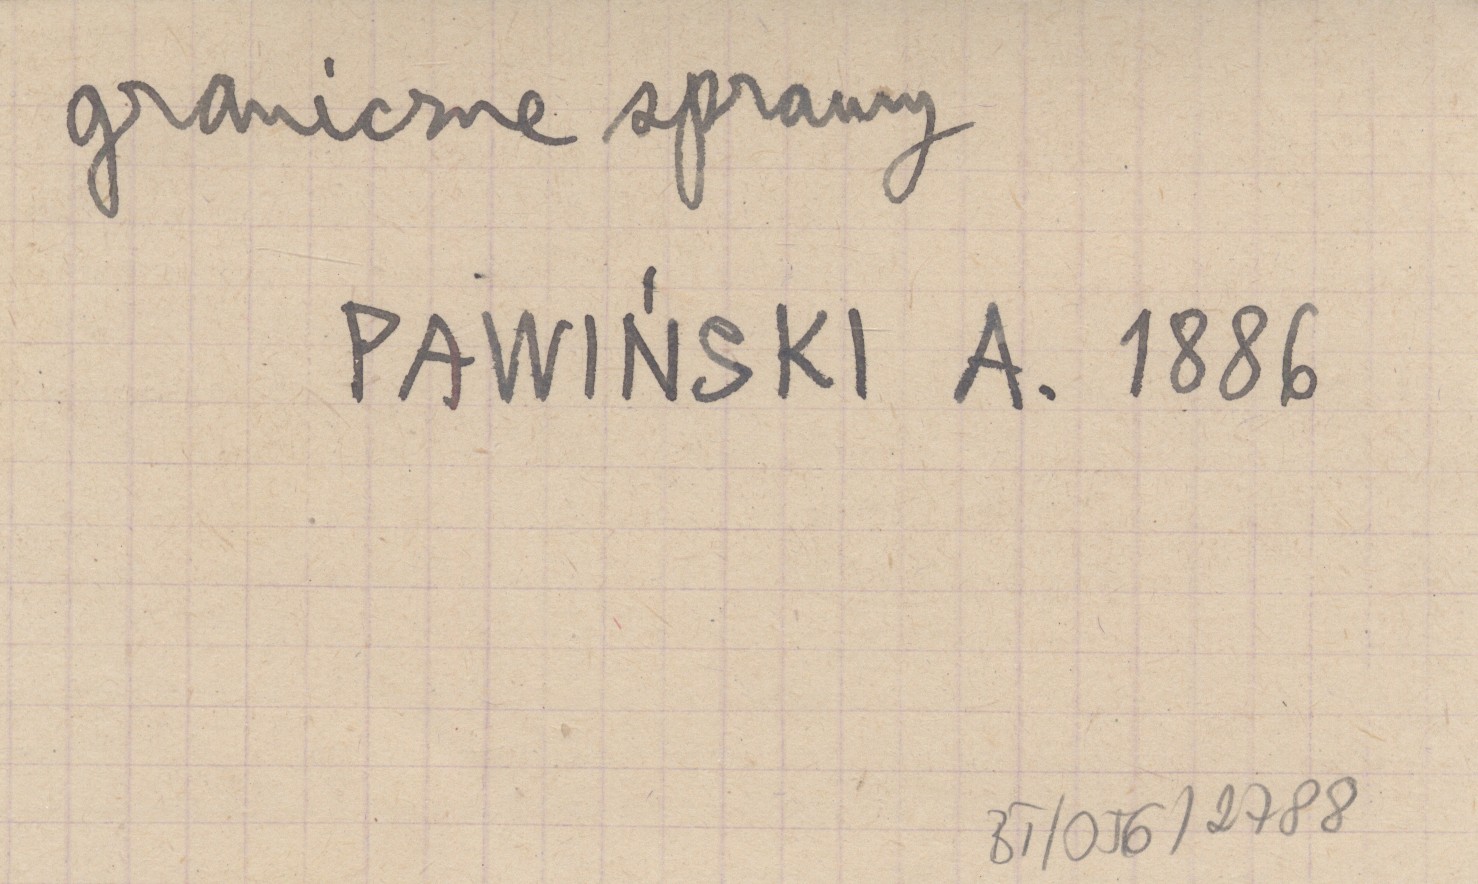 graniczne sprawy
PAWIŃSKI A. 1886
BI/OJG/2788